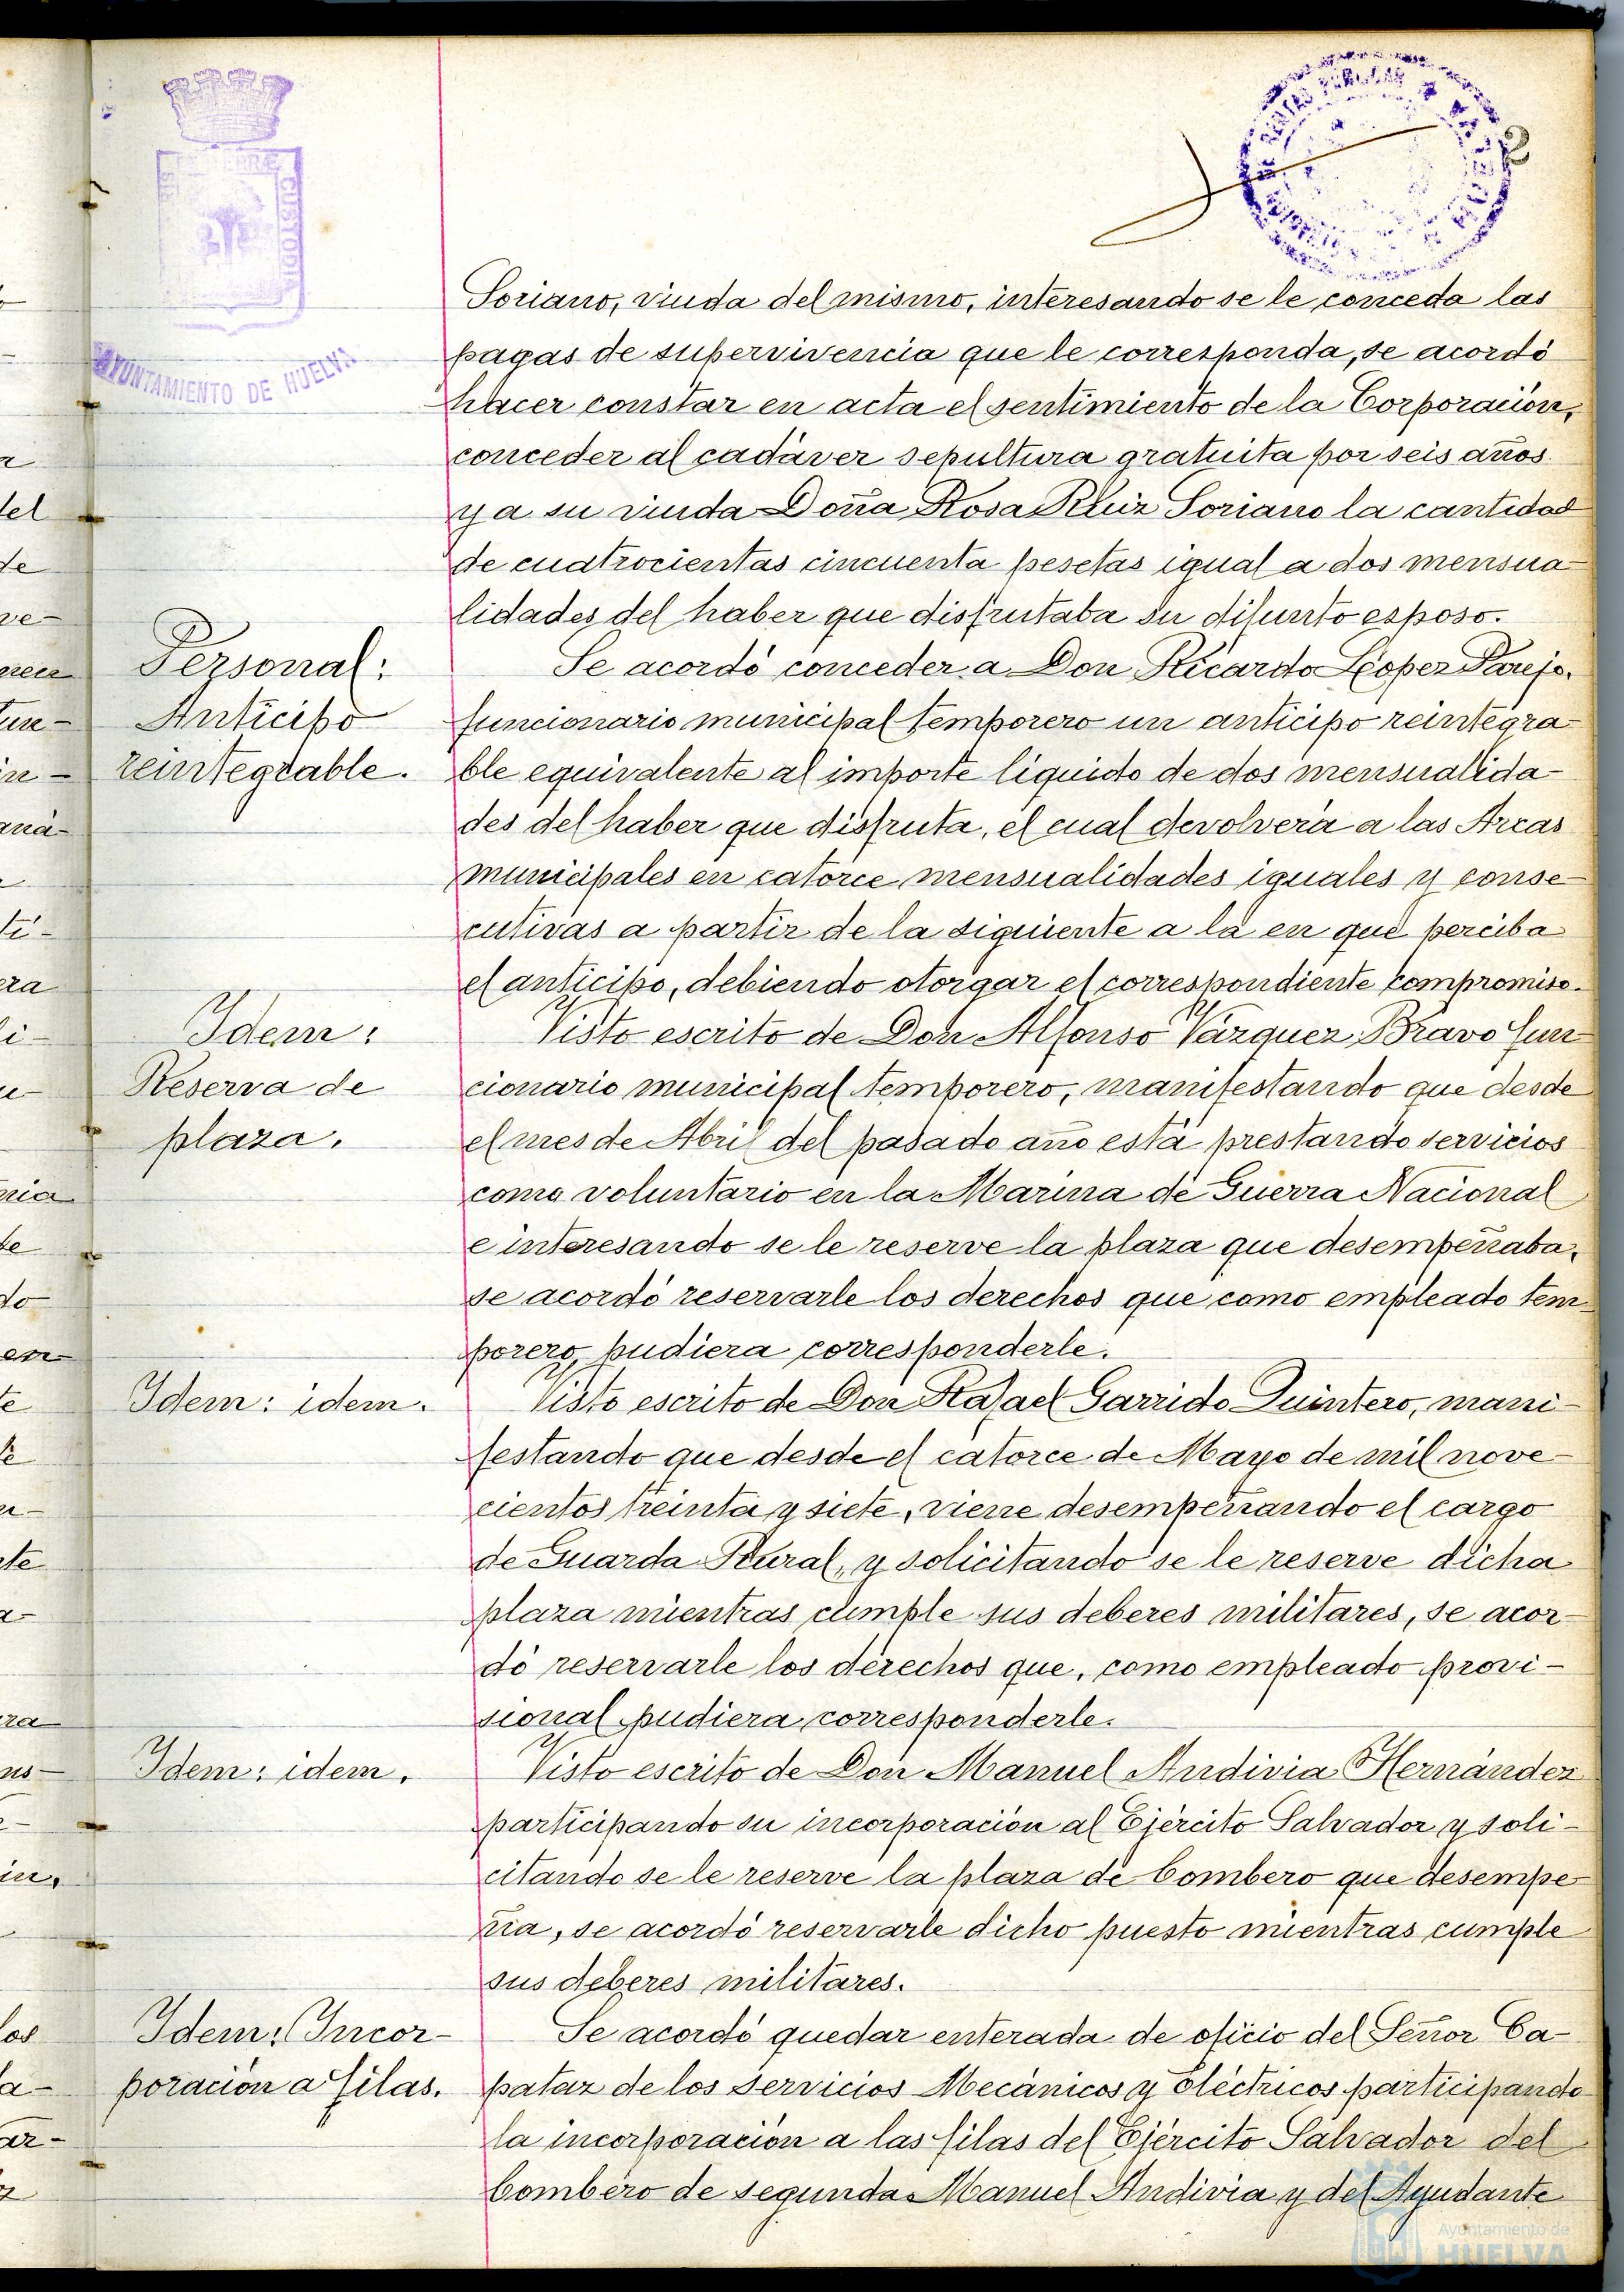 2
CUSTODIA
AYUNTAMIENTO DE HUELVA
Soriano, viuda del mismo, interesando se le conceda las
pagas de supervivencia que le corresponda, se acordó
hacer constar en acta el sentimiento de la Corporación,
conceder al cadáver sepultura gratuita por seis años
y a su viuda Doña Rosa Ruiz Soriano la cantidad
de cuatrocientas cincuenta pesetas igual a dos mensua-
lidades del haber que disfrutaba su difunto esposo.
Personal:
Anticipo
reintegrable.
Se acordó conceder a Don Ricardo López Parejo,
funcionario municipal temporero un anticipo reintegra-
ble equivalente al importe líquido de dos mensualida-
des del haber que disfruta, el cual devolverá a las Arcas
municipales en catorce mensualidades iguales y conse-
cutivas a partir de la siguiente a la en que perciba
el anticipo, debiendo otorgar el correspondiente compromiso.
Idem:
Reserva de
plaza.
Visto escrito de Don Alfonso Vázquez Bravo fun-
cionario municipal temporero, manifestando que desde
el mes de Abril del pasado año está prestando servicios
como voluntario en la Marina de Guerra Nacional
e interesando se le reserve la plaza que desempeñaba,
se acordó reservarle los derechos que como empleado tem-
porero, pudiera corresponderle.
Idem: idem.
Visto escrito de Don Rafael Garrido Quintero, mani-
festando que desde el catorce de Mayo de mil nove-
cientos treinta y siete, viene desempeñando el cargo
de Guarda Rural, y solicitando se le reserve dicha
plaza mientras cumple sus deberes militares, se acor-
dó reservarle los derechos que, como empleado provi-
sional pudiera corresponderle.
Idem: idem.
Visto escrito de Don Manuel Andivia Hernández
participando su incorporación al Ejército Salvador y soli-
citando se le reserve la plaza de bombero que desempe-
ña, se acordó reservarle dicho puesto mientras cumple
sus deberes militares.
Idem: Incor-
poración a filas.
Se acordó quedar enterada de oficio del Señor Ca-
pataz de los servicios Mecánicos y Eléctricos participando
la incorporación a las filas del Ejército Salvador del
bombero de segunda Manuel Andivia y del Ayudante
Ayuntamiento de
HUELVA